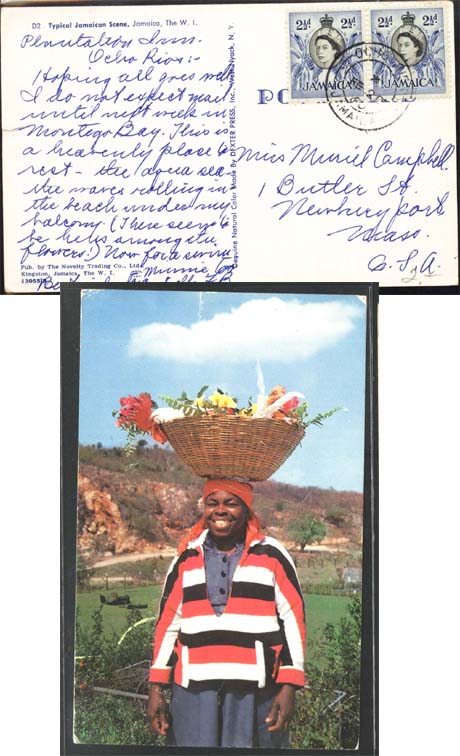 D2 Typical Jamaican Scene, Jamaica, The W. I.
Plantation Inn
Ocho Rios:-
Hoping all goes well
I do not expect mail
until next week in
Montego Bay. This is
a heavenly place to
rest - the aqua sea
the waves rolling in
the beach under my
balcony (There seems to
be
flowers!) Now for a swim
Minnie
Pub. by The Novelty Trading Co., Ltd.
Kingston, Jamaica, The W. I.
Genuine Natural Color Made By DEXTER PRESS, Inc., West Nyack, N. Y.
PO
2½d 2½d
JAMAICA JAMAICA
Miss Muriel Campbell
1 Butler St.
Newburyport
Mass.
U.S.A.